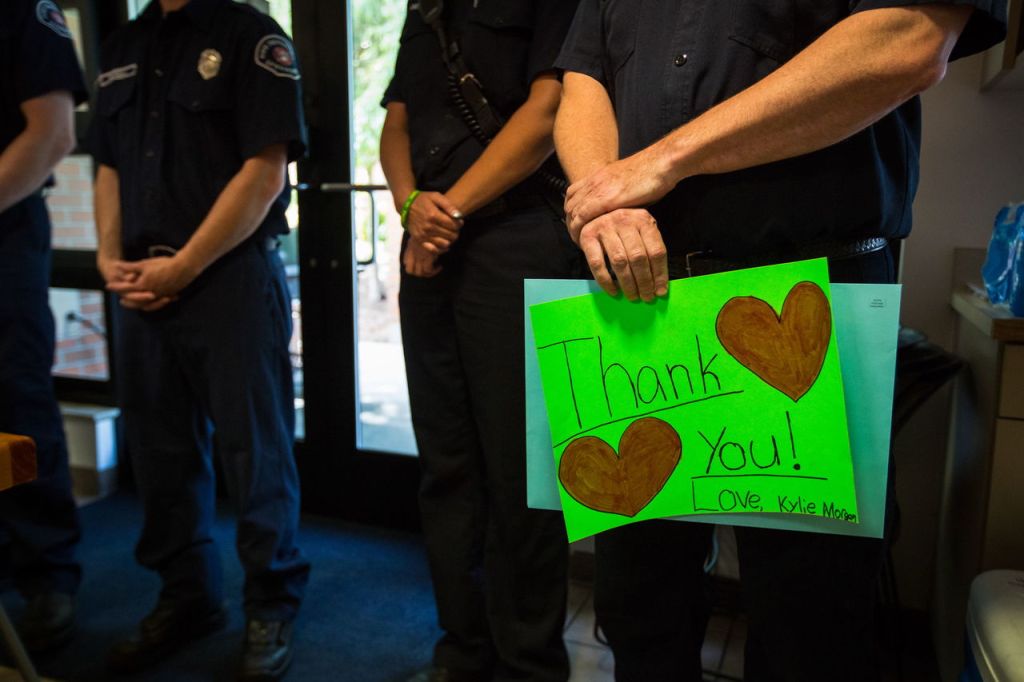 Thank
You!
Love, Kylie Morgan